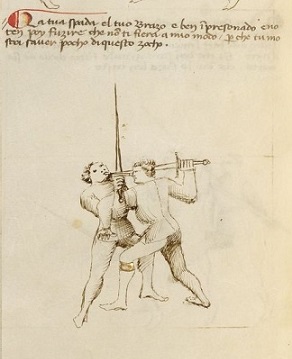 La tua spada el tuo Brazo e ben inpresonado e no
ten poy fuzire che non ti fiera a mio modo, per che tu mo
stri saver pocho di questo zocho.